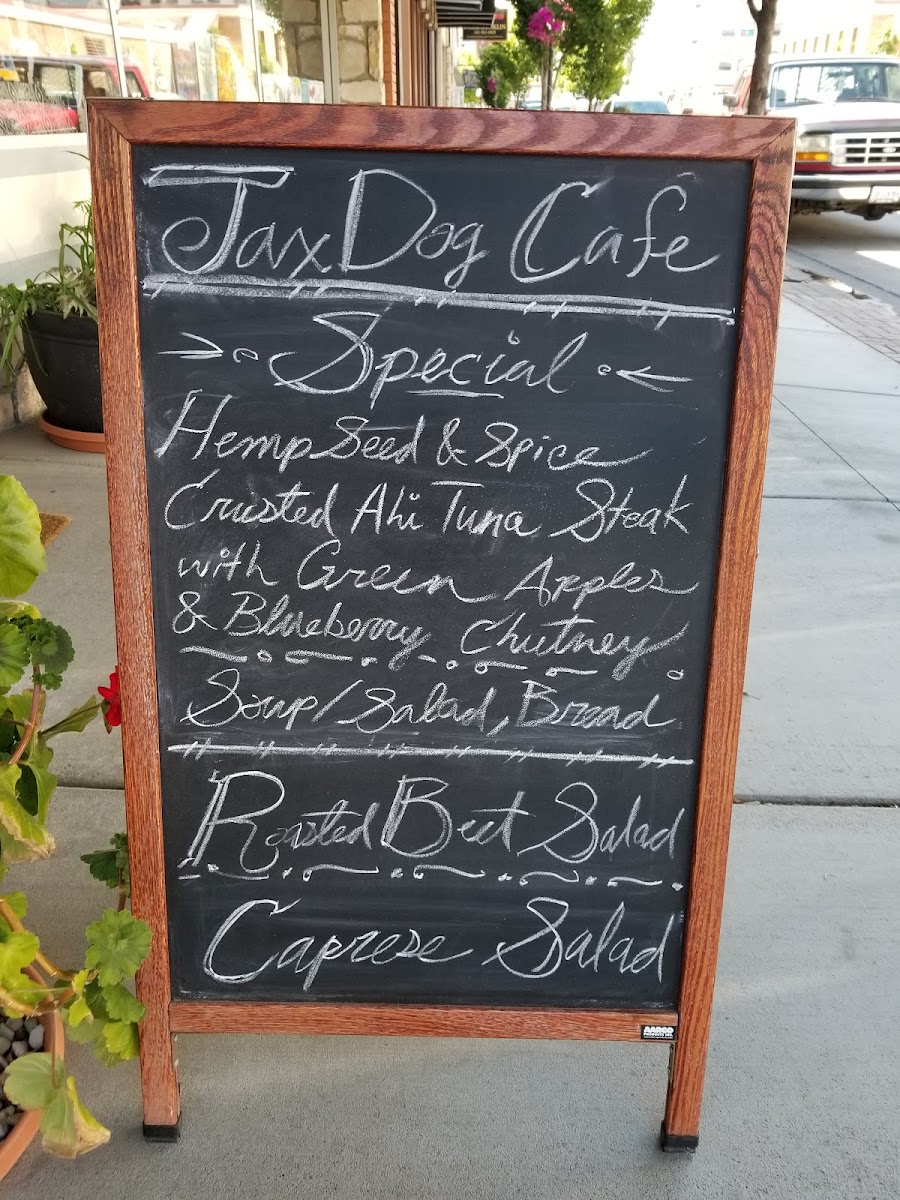 Jax Dog Café
Special
Hemp Seed & Spice
Crusted Ahi Tuna Steak
with Green Apples
& Blueberry Chutney
Soup/Salad, Bread
Roasted Beet Salad
Caprese Salad
AARCO